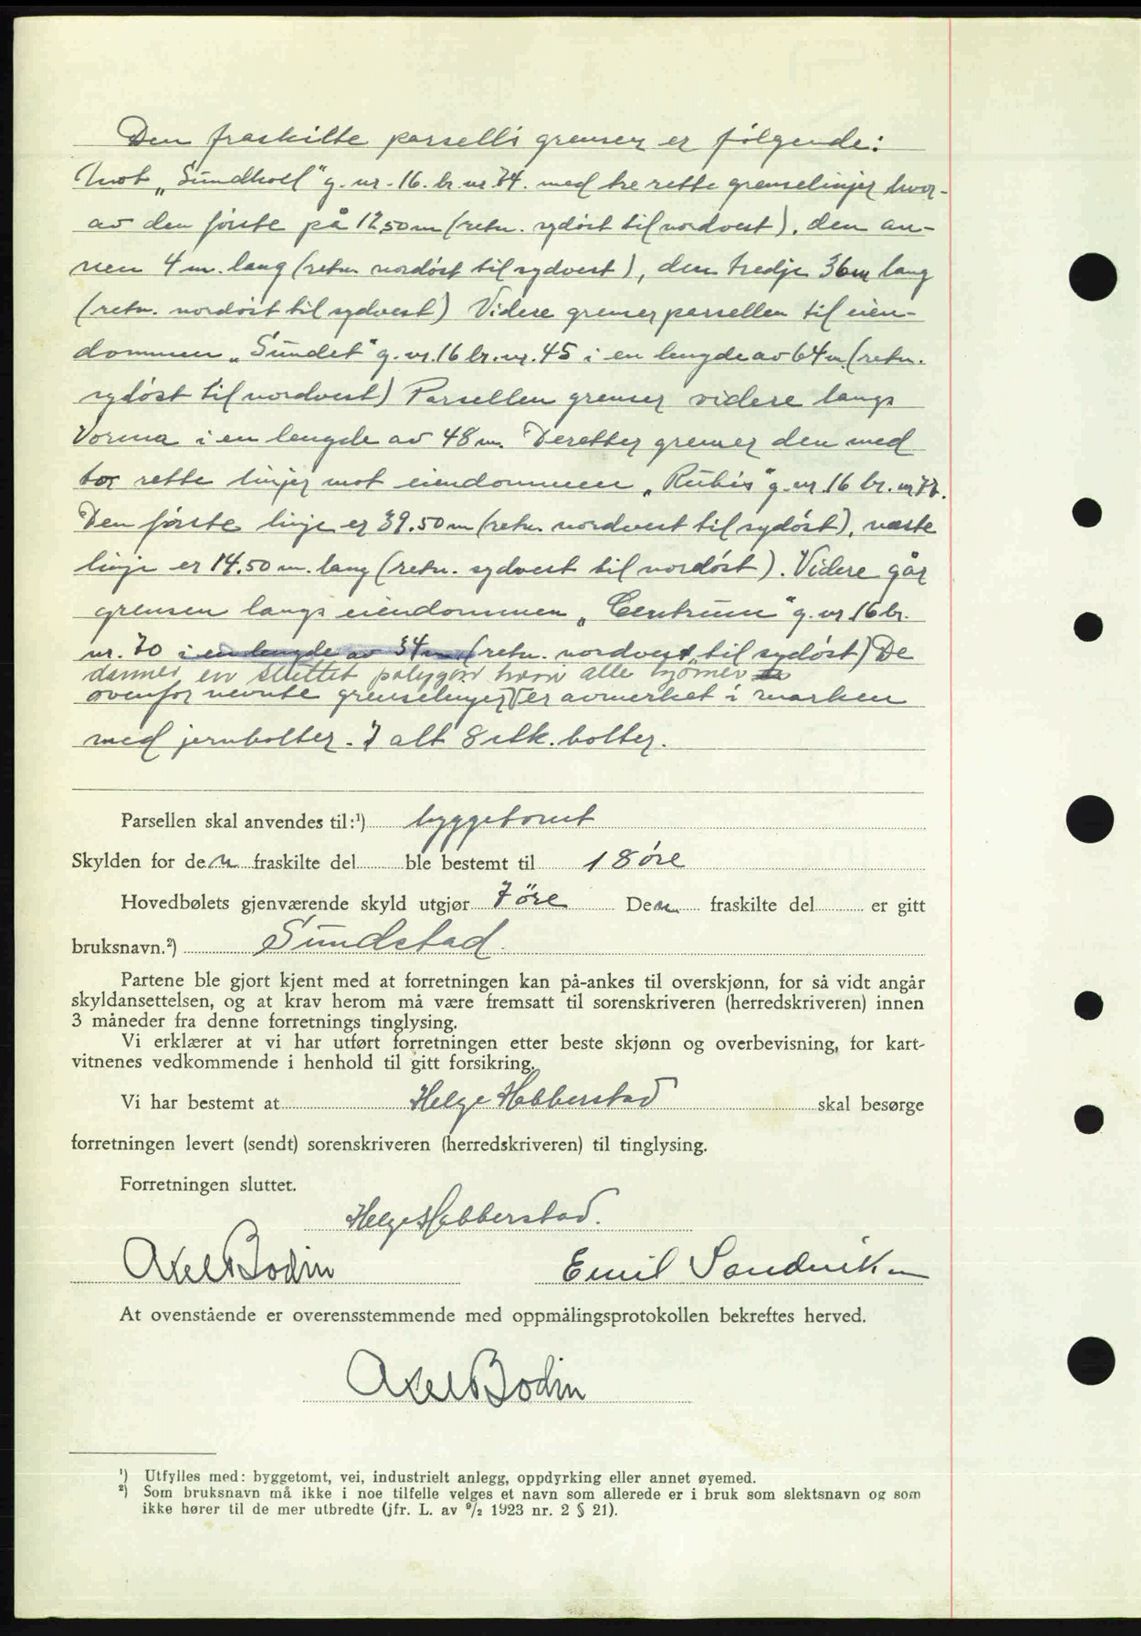 Den fraskilte parsells grenser er følgende:
Mot „Sundholt" g. nr. 16. br. nr. 74. med tre rette grenselinjer hvor-
av den første på 12,50 m (retn. sydøst til nordvest), den an-
nen 4 m. lang (retn. nordøst til sydvest), den tredje 36 m lang
(retn. nordøst til sydvest) Videre grenser parsellen til eien-
dommen „Sundet" g. nr. 16 br. nr. 45 i en lengde av 64 m. (retn.
sydøst til nordvest) Parsellen grenser videre langs
Vorma i en lengde av 48 m. Deretter grenser den med
to rette linjer mot eiendommen „Rubis" g. nr. 16 br. nr.
Den første linje er 39.50 m (retn. nordvest til sydøst), næste
linje er 14.50 m. lang (retn. sydvest til nordøst). Videre går
grensen langs eiendommen „Centrum" g. nr. 16 br.
nr. 70 i en lengde av 34 m (retn. nordvest til sydøst) De
danner en sluttet polygon hvori alle hjørner
ovenfor nevnte grenselinjer er avmerket i marken
med jernbolter. I alt 8 stk. bolter.
Parsellen skal anvendes til:¹) byggetomt
Skylden for den fraskilte del ble bestemt til 18 øre
Hovedbølets gjenværende skyld utgjør 7 øre Den fraskilte del er gitt
bruksnavn.²) Sundstad.
Partene ble gjort kjent med at forretningen kan på-ankes til overskjønn, for så vidt angår
skyldansettelsen, og at krav herom må være fremsatt til sorenskriveren (herredskriveren) innen
3 måneder fra denne forretnings tinglysing.
Vi erklærer at vi har utført forretningen etter beste skjønn og overbevisning, for kart-
vitnenes vedkommende i henhold til gitt forsikring.
Vi har bestemt at Helge Habberstad skal besørge
forretningen levert (sendt) sorenskriveren (herredskriveren) til tinglysing.
Forretningen sluttet.
Helge Habberstad.
Axel Bodin Emil Sandviken
At ovenstående er overensstemmende med oppmålingsprotokollen bekreftes herved.
Axel Bodin
¹) Utfylles med: byggetomt, vei, industrielt anlegg, oppdyrking eller annet øyemed.
²) Som bruksnavn må ikke i noe tilfelle velges et navn som allerede er i bruk som slektsnavn og som
ikke hører til de mer utbredte (jfr. L. av ⁹/₂ 1923 nr. 2 § 21).